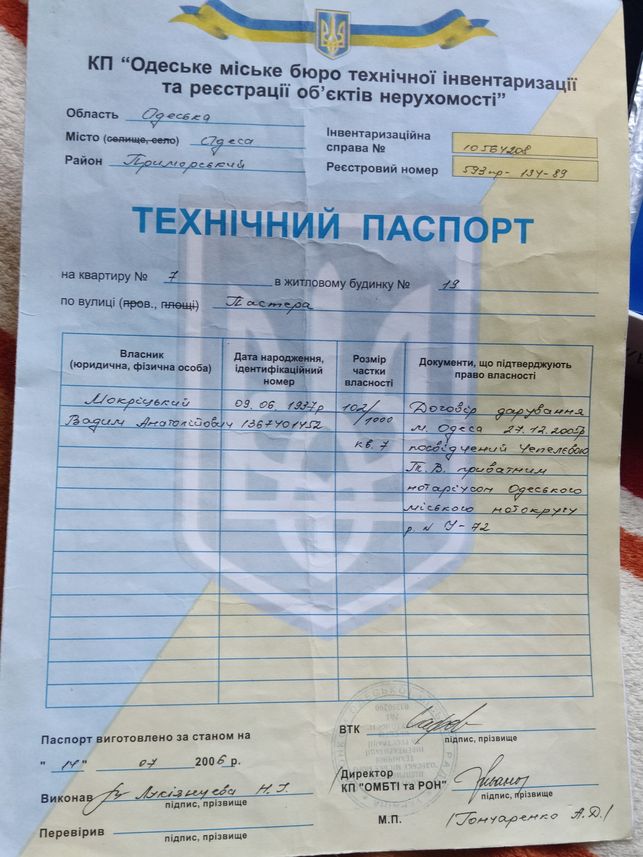 КП “Одеське міське бюро технічної інвентаризації
та реєстрації об’єктів нерухомості”
Область Одеська
Місто (селище, село) Одеса
Район Приморський
Інвентаризаційна
справа №
Реєстровий номер 593пр- 134-89
ТЕХНІЧНИЙ ПАСПОРТ
на квартиру № 7 в житловому будинку № 19
по вулиці (пров., площі) Пастера
Власник
(юридична, фізична особа)
Дата народження,
ідентифікаційний
номер
Розмір
частки
власності
Документи, що підтверджують
право власності
Мокріцький
Вадим Анатолійович
09.06.1937р
1367401452
102/1000
кв. 7
Договір дарування
м. Одеса 27.12.2005р
посвідчений Чепелєвою
Т.В. приватним
нотаріусом Одеського
міського нотокругу
р. №
Паспорт виготовлено за станом на
"14" 07 2006 р.
Виконав Лукізнуєва Н.Г.
підпис, прізвище
Перевірив
підпис, прізвище
ВТК
підпис, прізвище
Директор
КП "ОМБТІ та РОН"
підпис, прізвище
М.П. /Гончаренко А.Д./